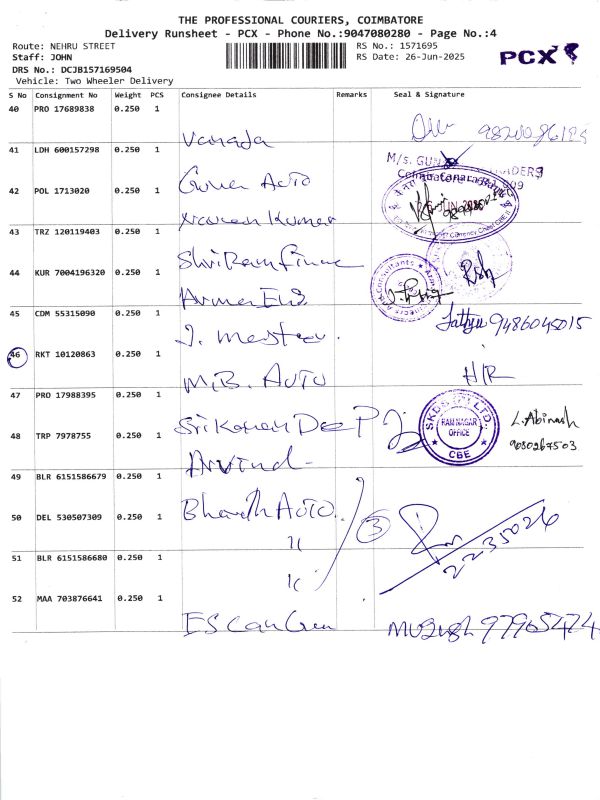 THE PROFESSIONAL COURIERS, COIMBATORE
Delivery Runsheet - PCX - Phone No.:9047080280 - Page No.:4
Route: NEHRU STREET
Staff: JOHN
DRS No.: DCJB157169504
Vehicle: Two Wheeler Delivery
RS No.: 1571695
RS Date: 26-Jun-2025
PCX
S No Consignment No Weight PCS Consignee Details Remarks Seal & Signature
40 PRO 17689838 0.250 1
Vanada
41 LDH 600157298 0.250 1
Auto
M/s. GUN
42 POL 1713020 0.250 1
Naveen Kumar
43 TRZ 120119403 0.250 1
Shri Ram
44 KUR 7004196320 0.250 1
45 CDM 55315090 0.250 1
9486045015
46 RKT 10120863 0.250 1
M.B. AUTO
H/R
47 PRO 17988395 0.250 1
Sri
SKD LTD.
RAM NAGAR
OFFICE
CBE
L. Abinash
9080267503
48 TRP 7978755 0.250 1
Arvind
49 BLR 6151586679 0.250 1
50 DEL 530507309 0.250 1
Bharath AUTO
3
2235026
"
51 BLR 6151586680 0.250 1
"
52 MAA 703876641 0.250 1